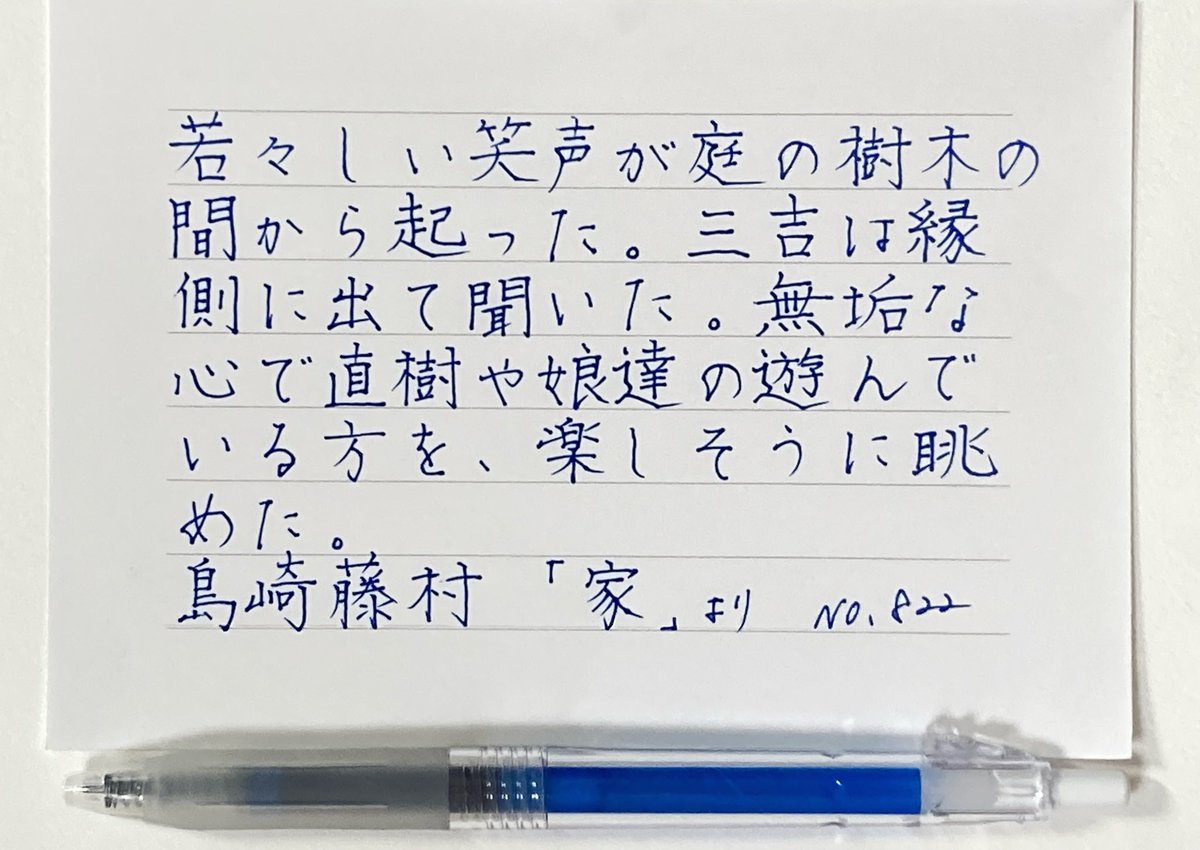 若々しい笑声が庭の樹木の
間から起った。三吉は縁
側に出て聞いた。無垢な
心で直樹や娘達の遊んで
いる方を、楽しそうに眺
めた。
島崎藤村「家」より NO.822